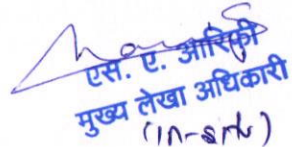 एस. ए. आरिफ़ी
मुख्य लेखा अधिकारी